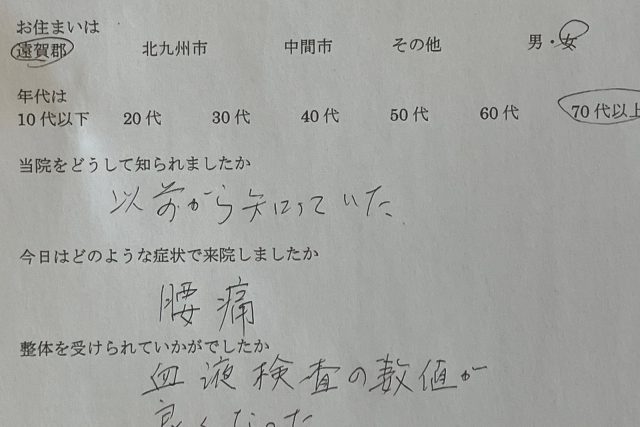 お住まいは
遠賀郡 北九州市 中間市 その他 男・女
年代は
10代以下 20代 30代 40代 50代 60代 70代以上
当院をどうして知られましたか
以前から知っていた
今日はどのような症状で来院しましたか
腰痛
整体を受けられていかがでしたか
血液検査の数値が
良くなった